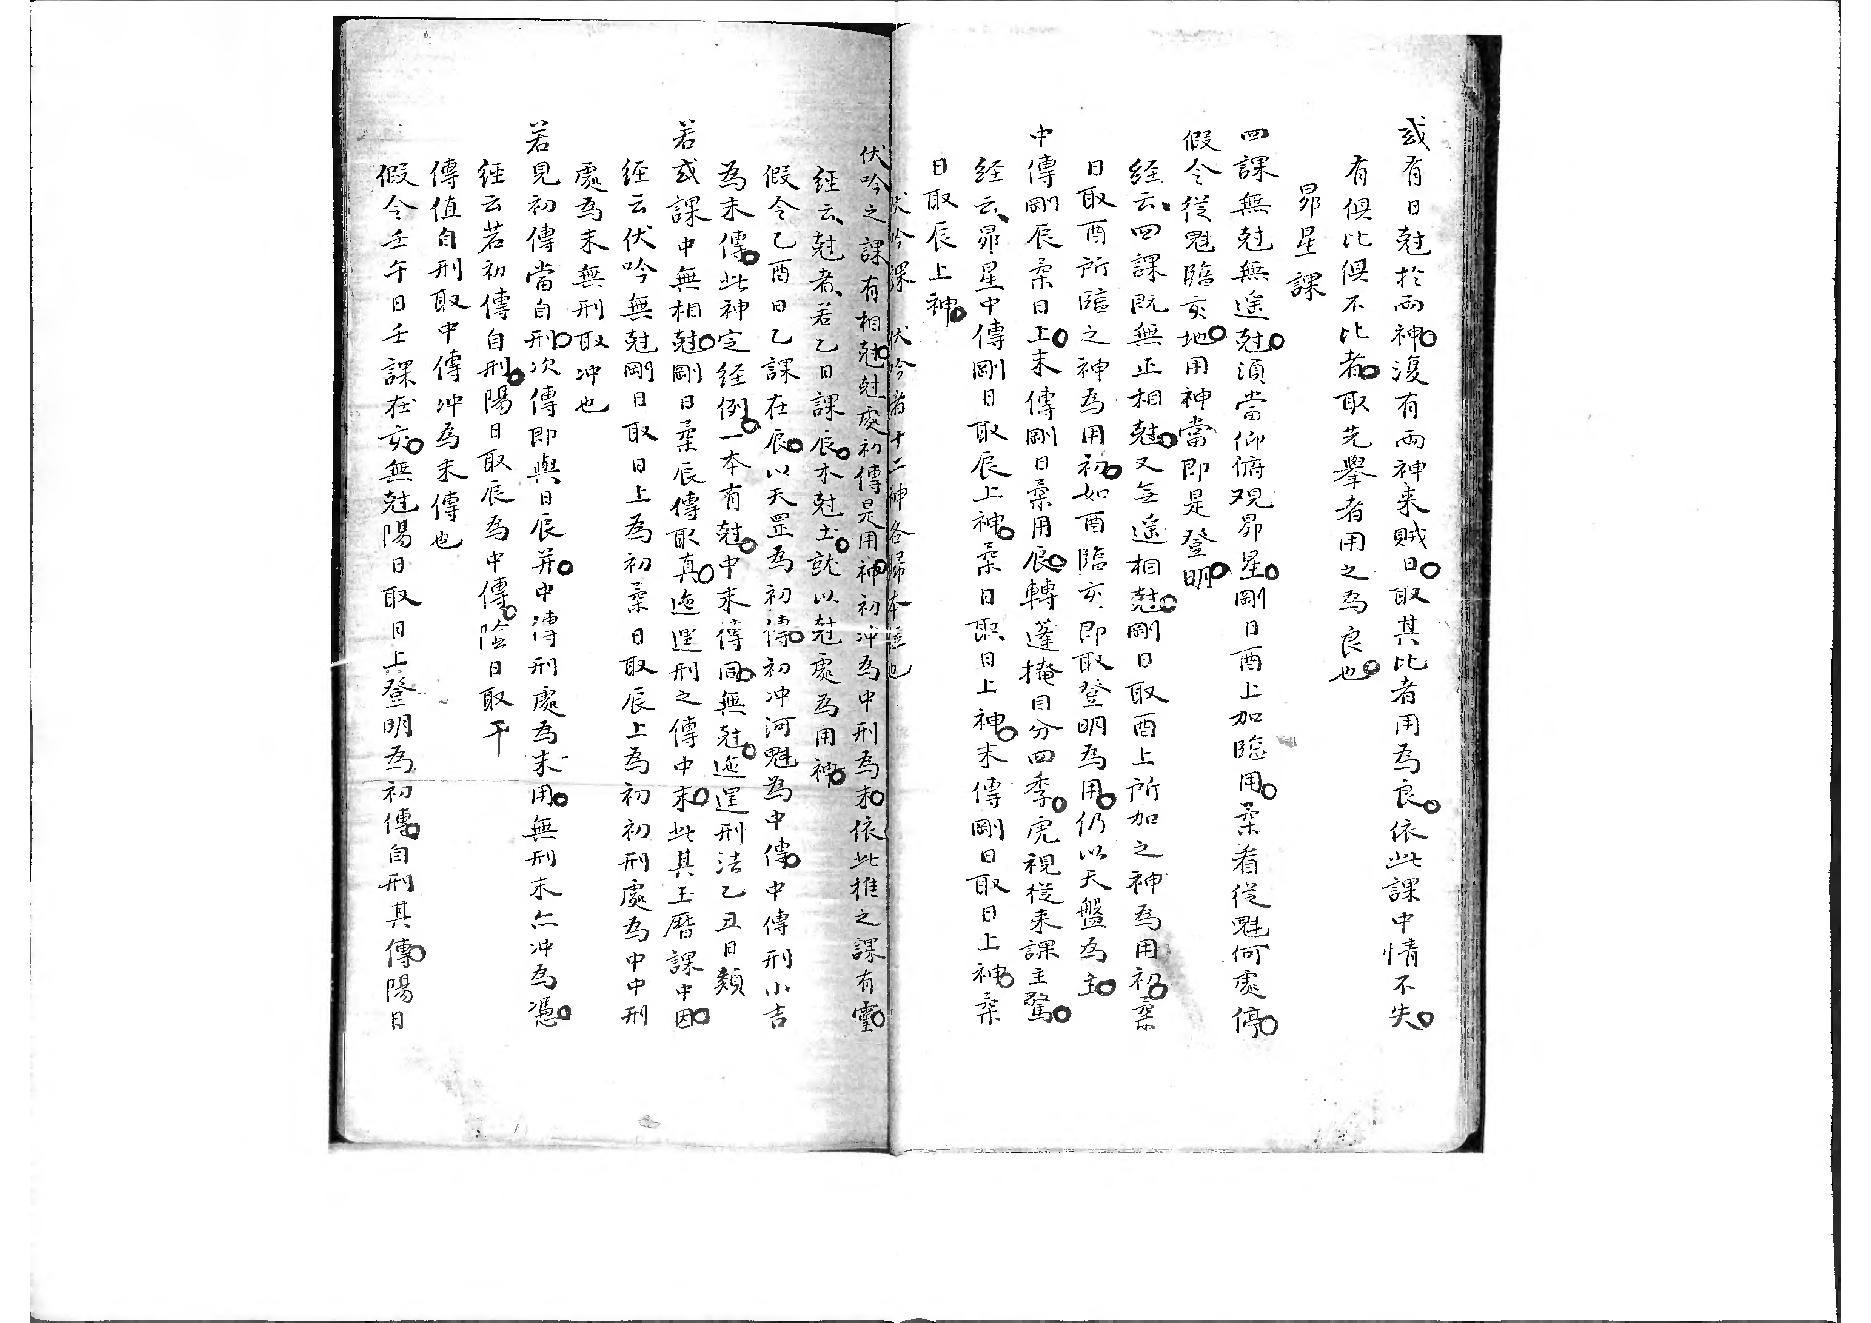 或有日尅扵兩神。復有兩神来賊日。取其比者用為良。依此課中情不失。
有俱比俱不比者。取先舉者用之為良也。
昴星課
四課無尅無遥尅。須當仰俯观昴星。剛日酉上加臨用。柔看從魁何處停。
假令從魁臨亥地。用神當即是登明。
経云、四課既無正相尅。又無遥相尅。剛日取酉上所加之神為用初。柔
日取酉所臨之神為用初。如酉臨亥即取登明為用。仍以天盤為主。
中傳剛辰柔日上。末傳剛日柔用辰。轉蓬掩目分四季。虎視從来課主驚。
経云、昴星中傳剛日取辰上神。柔日取日上神。末傳剛日取日上神。柔
日取辰上神。
伏吟課 伏吟者十二神各歸本位也
伏吟之課有相尅。尅處初傳是用神。初冲為中刑為末。依此推之課有靈。
経云、尅者、若乙日課辰。木尅土。就以尅處為用神。
假令乙酉日乙課在辰。以天罡為初傳。初冲河魁為中傳。中傳刑小吉
為末傳。此神定経例。一本有尅。中末傳同無尅。迤逞刑法乙丑日類
若或課中無相尅。剛日柔辰傳取真。迤逞刑之傳中末。此其玉曆課中因。
経云伏吟無尅剛日取日上為初柔日取辰上為初初刑處為中中刑
處為末無刑取冲也
若見初傳當自刑。次傳即與日辰并。中傳刑處為末用。無刑末亦冲為憑。
経云若初傳自刑。陽日取辰為中傳。陰日取干
傳值自刑取中傳冲為末傳也
假令壬午日壬課在亥。無尅陽日取日上登明為初傳。自刑其傳。陽日